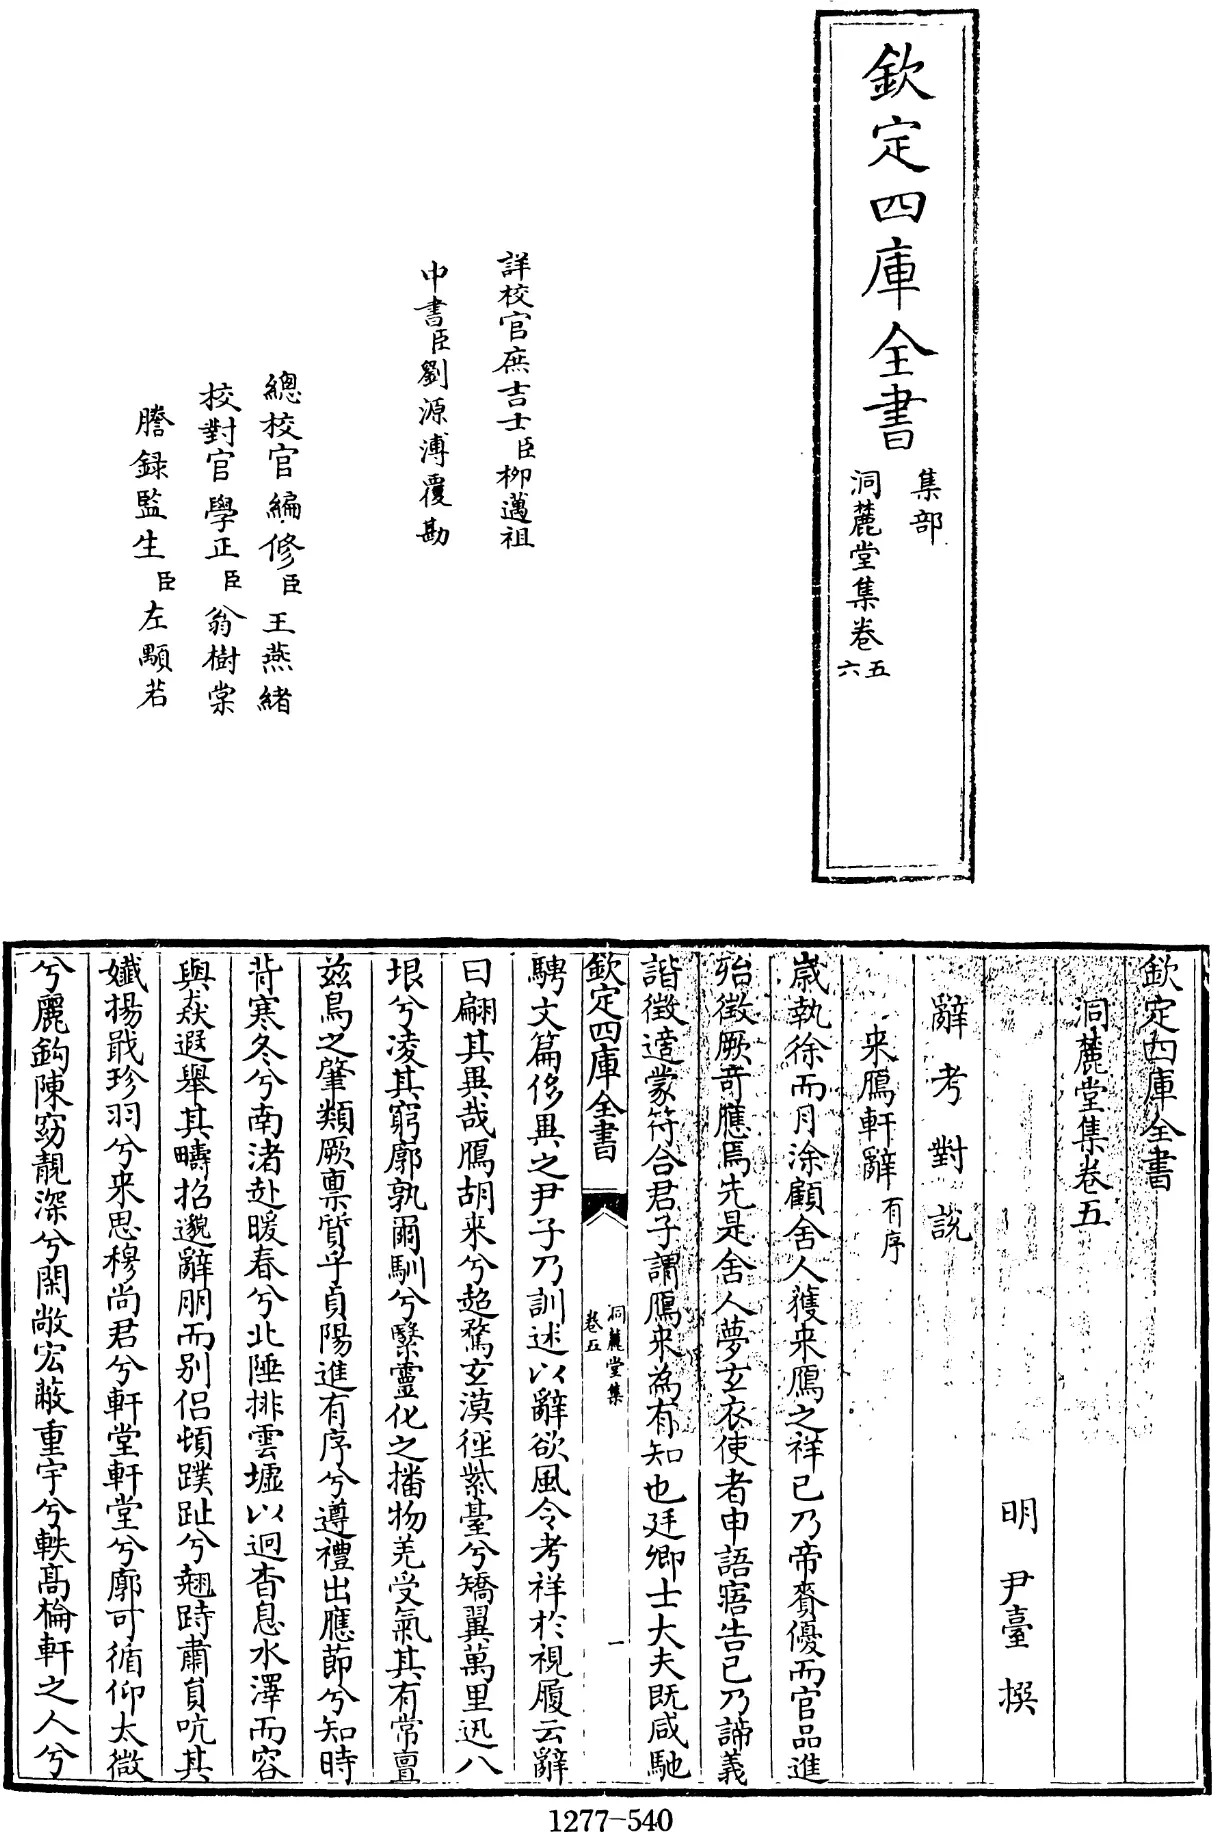 欽定四庫全書
集部
洞麓堂集卷五
六
詳校官庶吉士臣柳邁祖
中書臣劉源溥覆勘
總校官編修臣王燕緒
校對官學正臣翁樹棠
謄録監生臣左顯若
欽定四庫全書
洞麓堂集卷五
明 尹臺 撰
辭考對說
来鴈軒辭有序
歳執徐而月涂顧舍人獲来鴈之祥已乃帝賚優而官品進
殆徵厥竒應焉先是舍人夢玄衣使者申語寤告已乃諦義
諧徵適蒙符合君子謂鴈来為有知也廷卿士大夫既咸馳
欽定四庫全書
洞麓堂集
卷五
一
騁文篇侈異之尹子乃訓述以辭欲風令考祥於視履云辭
曰翩其異哉鴈胡来兮超騖玄漠徑紫臺兮矯翼萬里迅八
垠兮凌其窮廓孰爾馴兮繄靈化之播物羌受氣其有常亶
兹鳥之肇類厥禀質乎貞陽進有序兮遵禮出應節兮知時
背寒冬兮南渚赴暖春兮北陲排雲墟以迥杳息水澤而容
與猋遐舉其疇招邈辭朋而别侣頓蹼趾兮翹跱肅負吭其
孅揚戢珍羽兮来思穆尚君兮軒堂軒堂兮廓可循仰太微
兮麗鈎陳窈靚深兮閑敞宏蔽重宇兮軼髙棆軒之人兮
1277-540